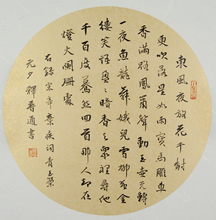 東風夜放花千樹
更吹落星如雨寶馬雕車
香滿路鳳簫聲動玉壺光轉
一夜魚龍舞蛾兒雪柳黃金
縷笑語盈盈暗香去眾裏尋他
千百度驀然回首那人卻在
燈火闌珊處
右錄宋辛棄疾詞青玉案
元夕 書